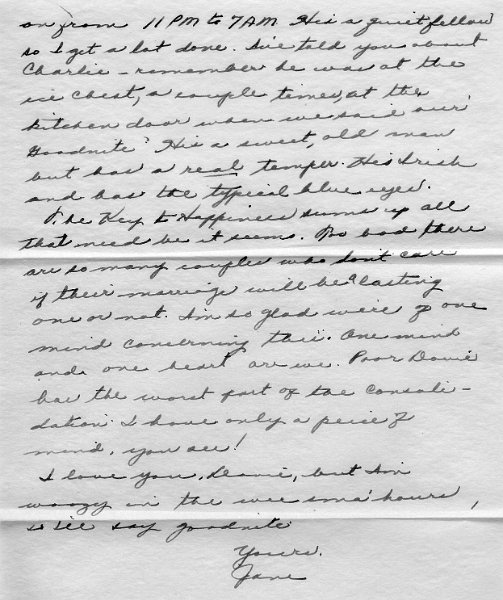 on from 11 PM to 7 AM. He's a quiet fellow
so I get a lot done. I've told you about
Charlie – remember he was at the
ice chest, a couple times, at the
kitchen door when we said our
"Goodnite" He's a sweet, old man
but has a real temper. He's Irish
and has the typical blue eyes.
The Key to Happiness sums up all
that need be it seems. Too bad there
are so many couples who don't care
if their marriage will be a lasting
one or not. I'm so glad we're of one
mind concerning this. One mind
and one heart are we. Poor Davie
has the worst part of the consoli-
dation. I have only a peice of
mind, you see!
I love you, Davie, but I'm
woozy in the wee sma' hours,
so I'll say goodnite
Yours,
Jane